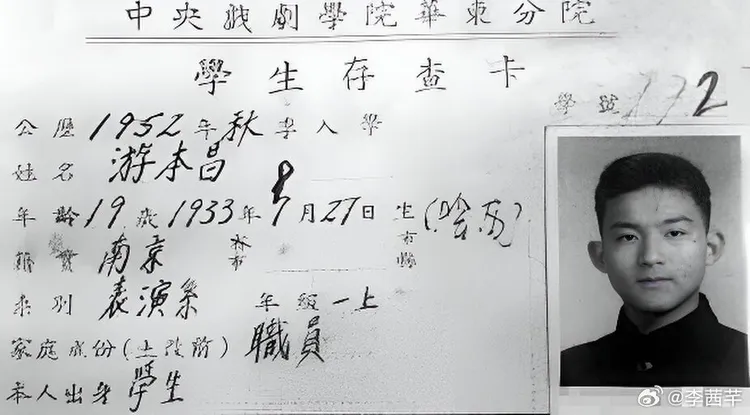 中央戏劇學院華東分院
學生存查卡
學號 172
公曆1952年秋季入學
姓名 游本昌
年齡19歲1933年8月27日生
籍貫 南京 市縣
系別 表演系 年級一上
家庭成份(土改前) 職員
本人出身 學生
@李茜芊